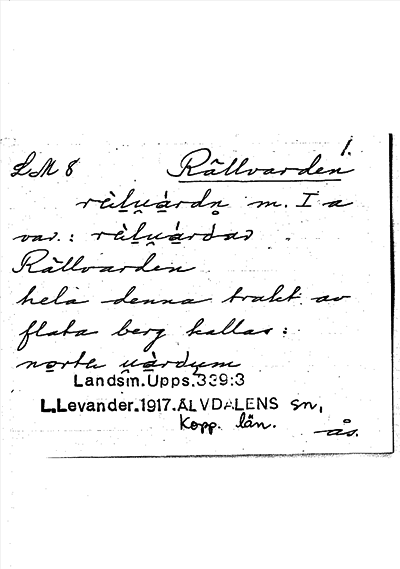 1.
LM 8 Rällvarden
rèlvàrdn m. I a
var.: rèlvàrdar
Rällvarden
hela denna trakt av
flata berg kallas:
norta vàrdum
Landsm.Upps.339:3
L.Levander.1917.ÄLVDALENS sn,
Kopp. län.
ås.